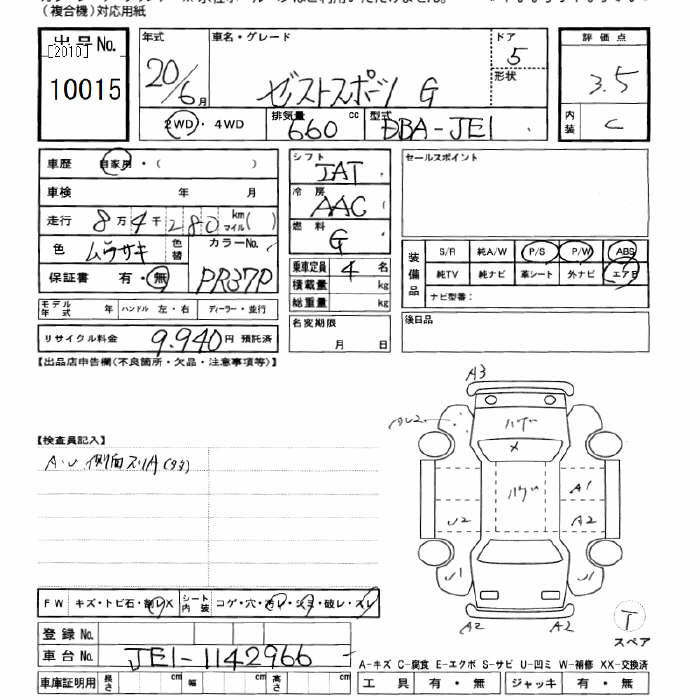 (複合機)対応用紙
出品No.
[2010]
10015
年式
20/6月
車名・グレード
ゼストスポーツ G
ドア
5
形状
2WD・4WD
排気量
660 cc
型式
DBA-JE1
評価点
3.5
内装
C
車歴 自家用・( )
車検 年 月
走行 8万4千280 km マイル( )
色 ムラサキ 色替 カラーNo.
PR37P
保証書 有・無
モデル年式 年 ハンドル 左・右 ディーラー・並行
リサイクル料金 9.940円 預託済
シフト
IAT
冷房
AAC
燃料
G
乗車定員 4名
積載量 kg
総重量 kg
名変期限
月 日
セールスポイント
装備品
S/R 純A/W P/S P/W ABS
純TV 純ナビ 革シート 外ナビ エアB
ナビ型番:
後日品
【出品店申告欄(不良箇所・欠品・注意事項等)】
【検査員記入】
FW キズ・トビ石・割レX シート内装 コゲ・穴・汚レ・シミ・破レ・スレ
登録No.
車台No. JE1-1142966
車庫証明用 長さ cm 幅 cm 高さ cm
A3
X
A1
U2
A2
U1
U1
A2
A2
T
スペア
A-キズ C-腐食 E-エクボ S-サビ U-凹ミ W-補修 XX-交換済
工具 有・無 ジャッキ 有・無